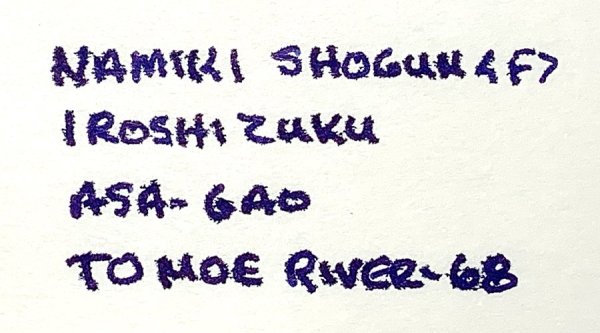 NAMIKI SHOGUN <F>
IROSHIZUKU
ASA-GAO
TOMOE RIVER-68